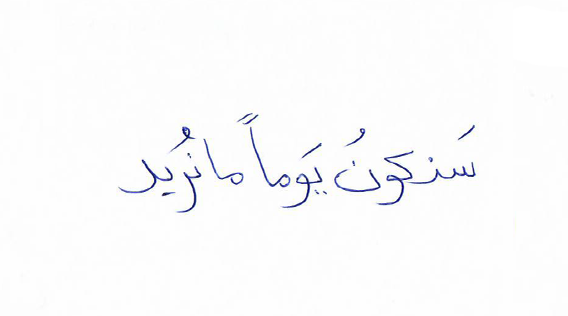 سَنكونُ يَوماً ما نُريد